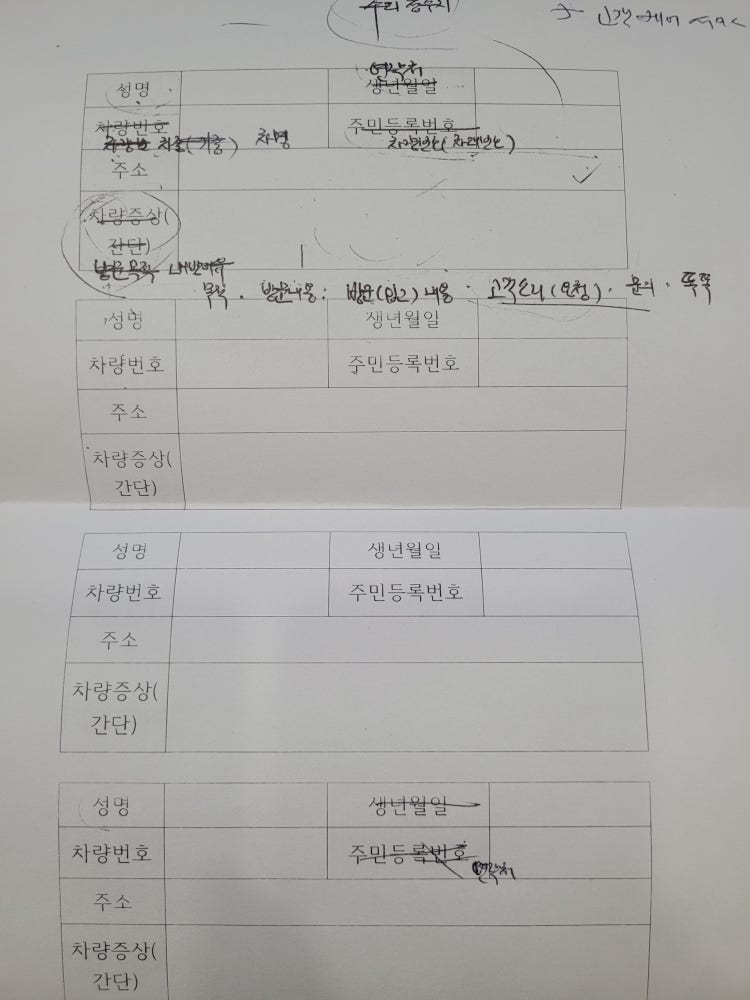 수리 접수지
→ 고객
성명 연락처 생년월일
차량번호 주민등록번호
차종(기종) 차명
주소
차량증상(
간단)
방문목적 내방이유
목적 · 방문내용 : 방문(입고) 내용 · 고객문의(요청) · 문의 · 똑똑
성명 생년월일
차량번호 주민등록번호
주소
차량증상(
간단)
성명 생년월일
차량번호 주민등록번호
주소
차량증상(
간단)
성명 생년월일
차량번호 주민등록번호
연락처
주소
차량증상(
간단)